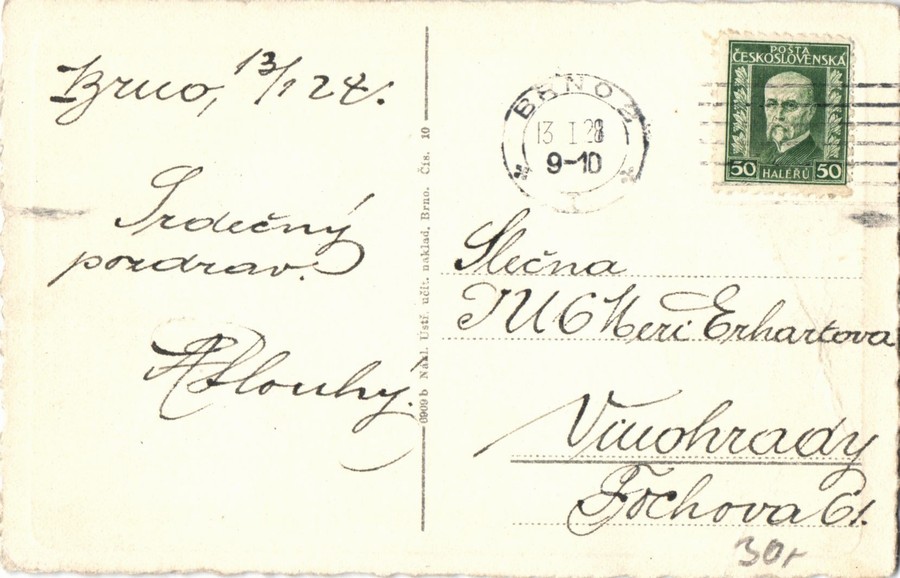 Brno, 13/I 28.
Srdečný
pozdrav.
ADlouhý.
0909 b Nákl. Ústř. učit. naklad, Brno. Čís. 10
BRNO 2
13 I 28
9-10
POŠTA
ČESKOSLOVENSKÁ
50 HALÉŘŮ 50
Slečna
JUC Meri Erhartova
Vinohrady
Fochova 61.
30,-